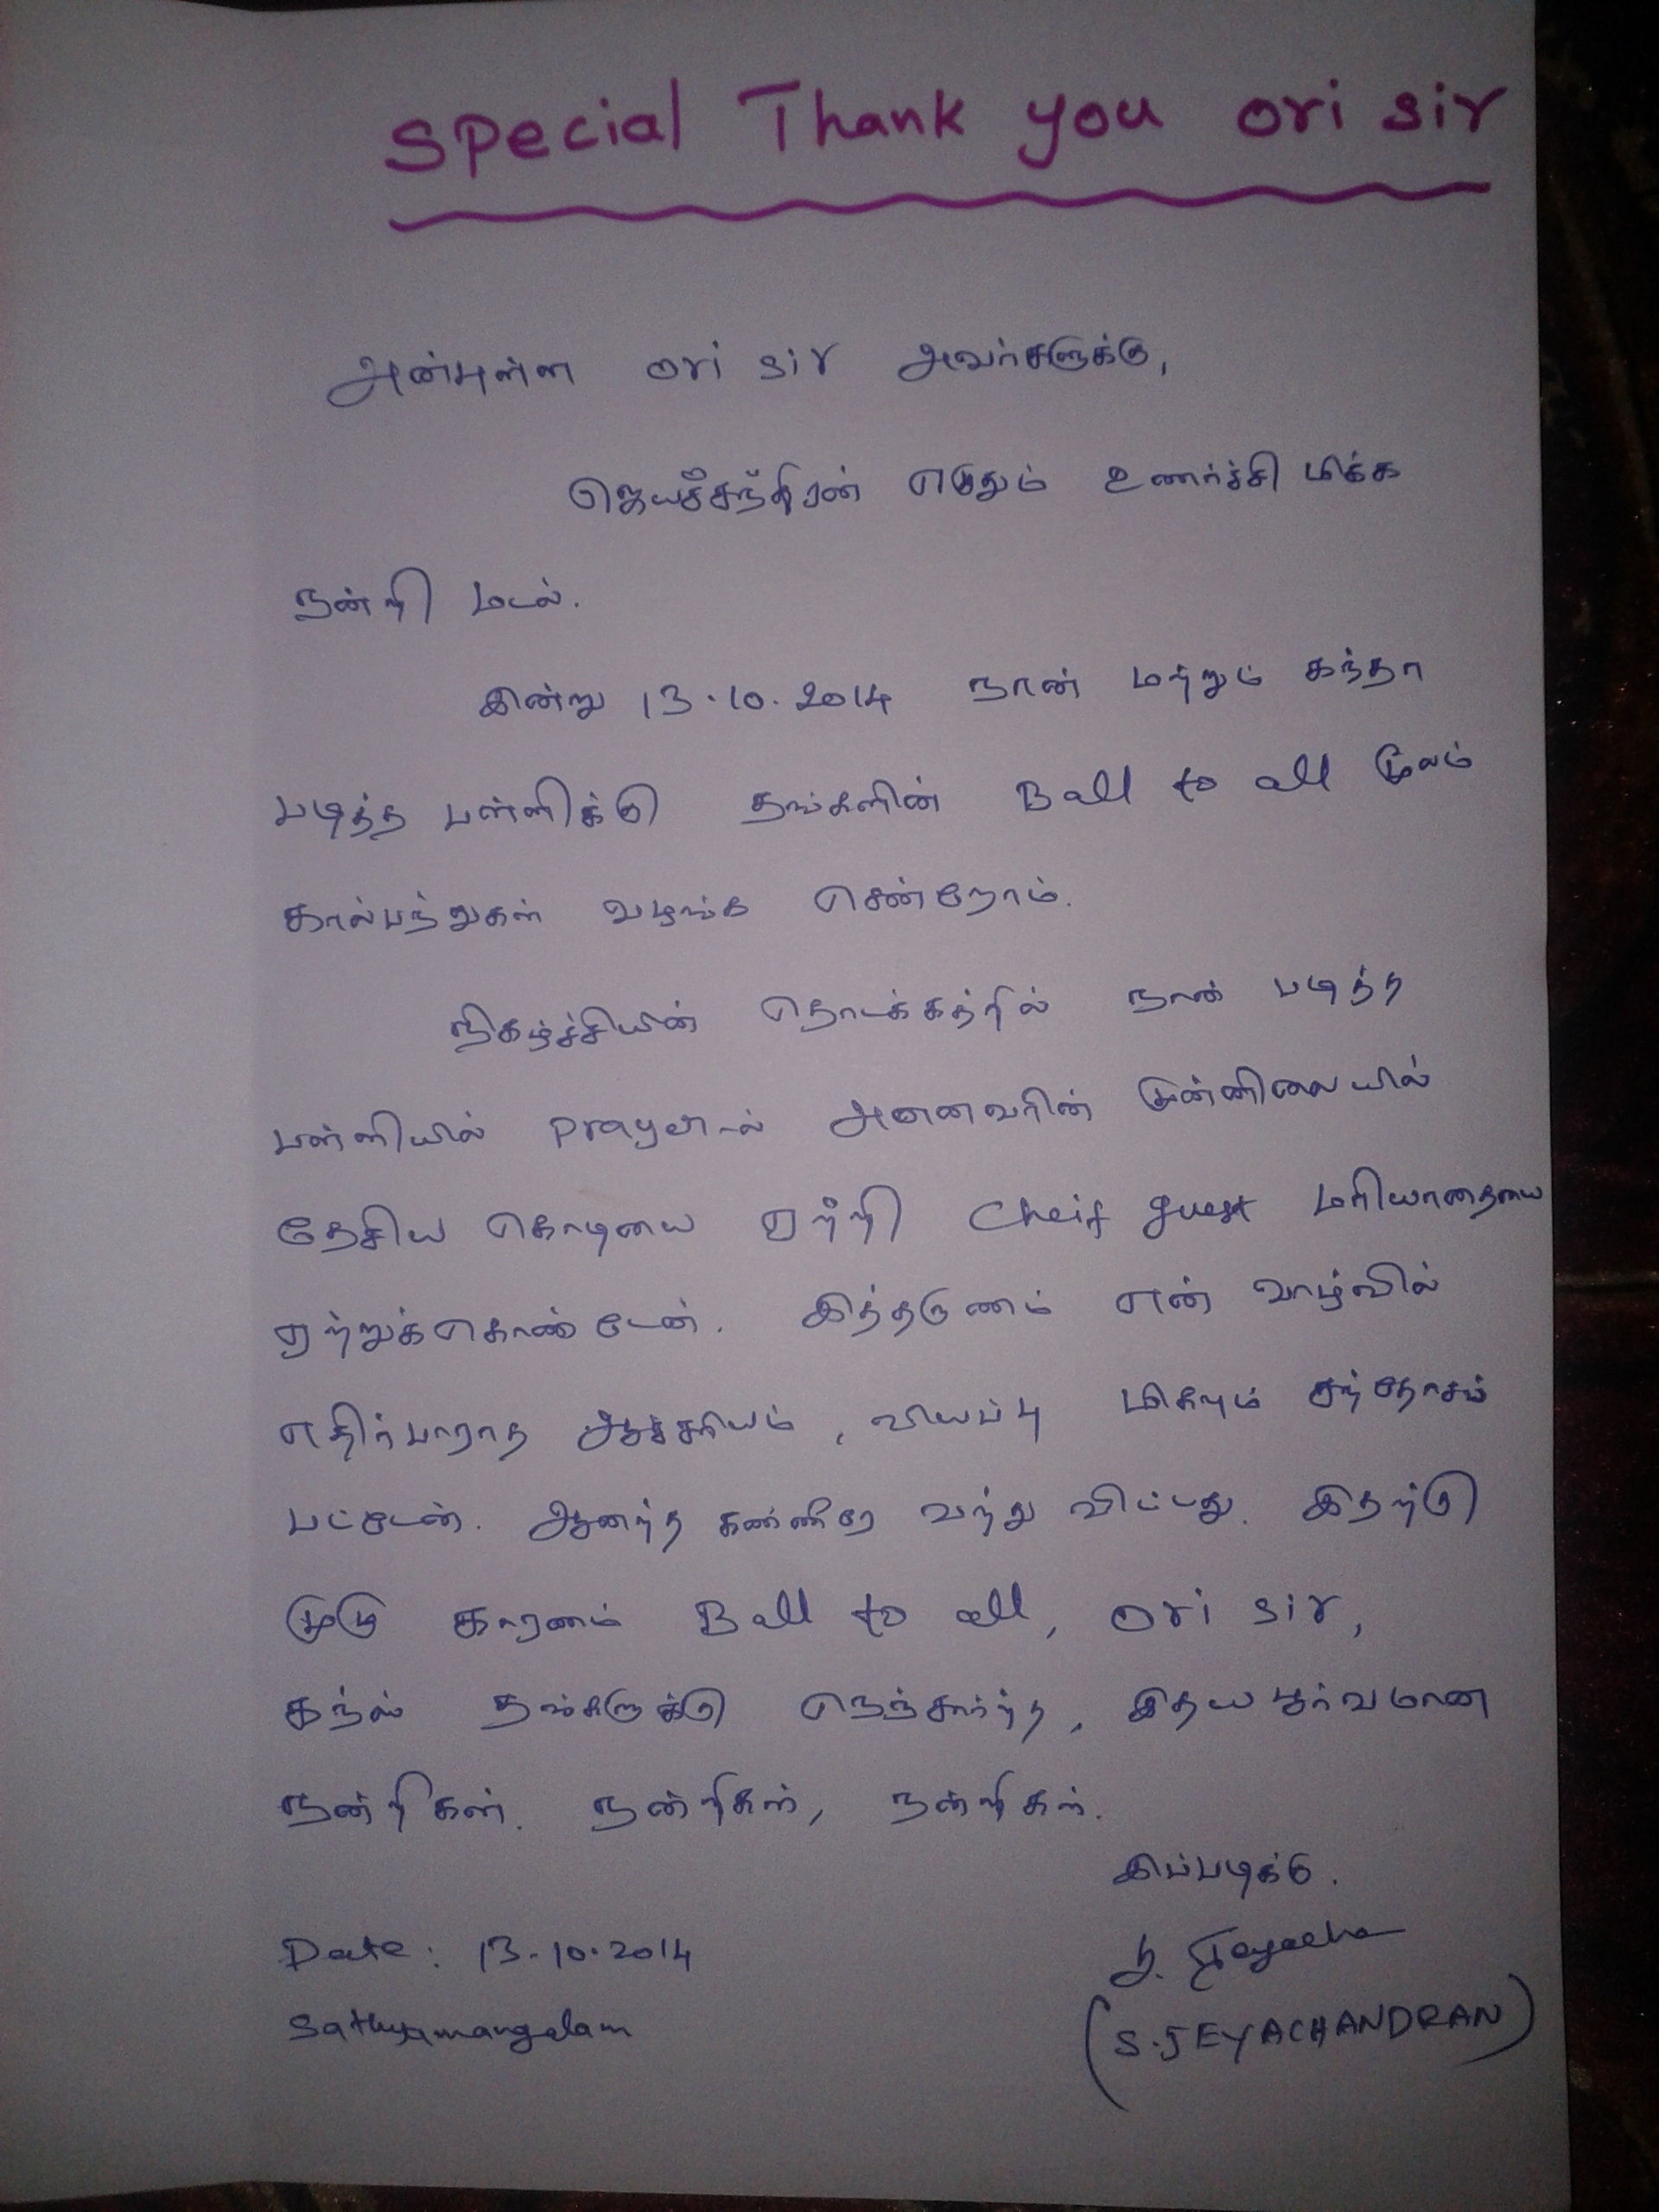 Special Thank you ori sir
அன்புள்ள ori sir அவர்களுக்கு,
ஜெயச்சந்திரன் எழுதும் உணர்ச்சி மிக்க
நன்றி மடல்.
இன்று 13.10.2014 நான் மற்றும் கந்தா
படித்த பள்ளிக்கு தங்களின் Ball to all மூலம்
கால்பந்துகள் வழங்க சென்றோம்.
நிகழ்ச்சியின் தொடக்கத்தில் நான் படித்த
பள்ளியில் அனைவரின் முன்னிலையில்
தேசிய கொடியை ஏற்றி Cheif guest மரியாதையை
ஏற்றுக்கொண்டேன். இத்தருணம் என் வாழ்வில்
எதிர்பாராத ஆச்சரியம், வியப்பு மிகவும் சந்தோசம்
பட்டேன். ஆனந்த கண்ணீரே வந்து விட்டது. இதற்கு
முழு காரணம் Ball to all, ori sir,
தங்களுக்கு நெஞ்சார்ந்த, இதய பூர்வமான
நன்றிகள். நன்றிகள், நன்றிகள்.
இப்படிக்கு.
Date: 13-10-2014
Sathyamangalam
(S.JEYACHANDRAN)